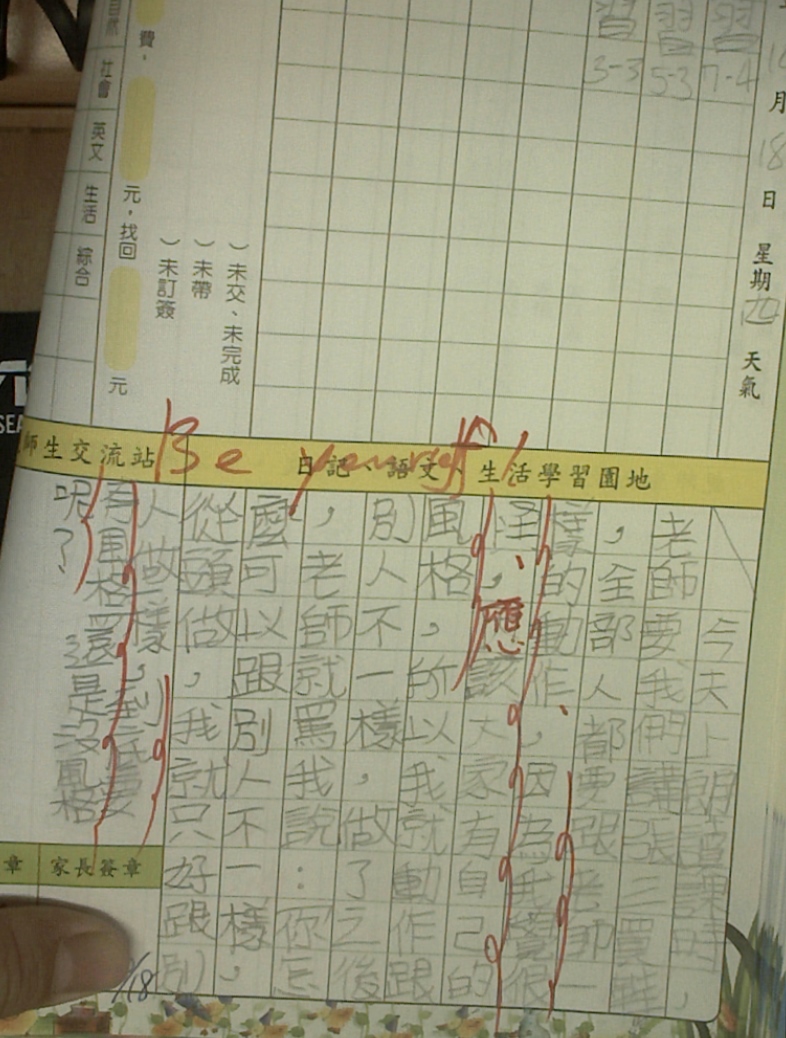 10月18日 星期四 天氣
習7-4
習5-3
習3-3
）未交、未完成
）未帶
）未訂簽
費，
元，找回
元
自然
社會
英文
生活
綜合
日記、語文、生活學習園地
Be yourself!
今天上朗讀課時，
老師要我們講張三買鞋
，全部人都要跟老師一
樣的動作，因為我覺很
怪，應該大家有自己的
風格，所以我就動作跟
別人不一樣，做了之後
，老師就罵我說：你怎
麼可以跟別人不一樣，
從頭做，我就只好跟別
人做一樣，到底要
有風格還是沒風格
呢？
師生交流站
家長簽章
章